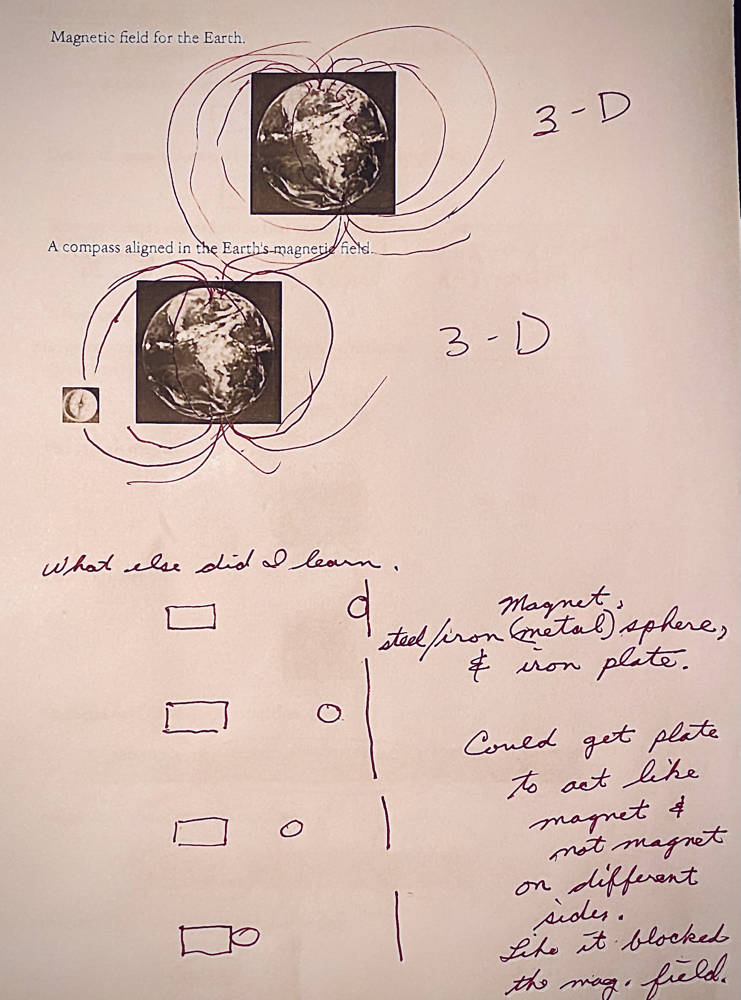 Magnetic field for the Earth.
3-D
A compass aligned in the Earth's magnetic field.
3-D
What else did I learn.
Magnet,
steel/iron (metal) sphere,
& iron plate.
Could get plate
to act like
magnet &
not magnet
on different
sides.
Like it blocked
the mag. field.